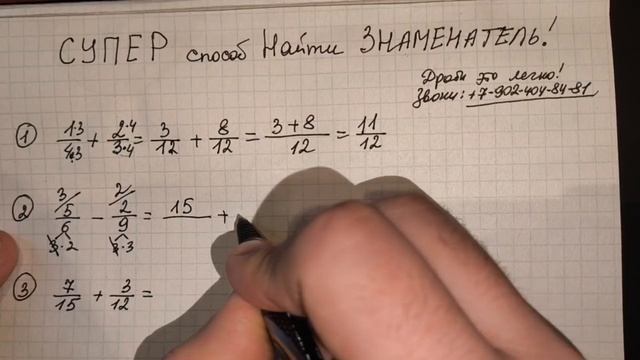 СУПЕР способ Найти ЗНАМЕНАТЕЛЬ!
Дроби это легко!
Звони: +7-902-404-84-81
① 1·3/4·3 + 2·4/3·4 = 3/12 + 8/12 = 3+8/12 = 11/12
② 3/ 5/6 − 2/ 2/9 = 15/ +
3·2 3·3
③ 7/15 + 3/12 =